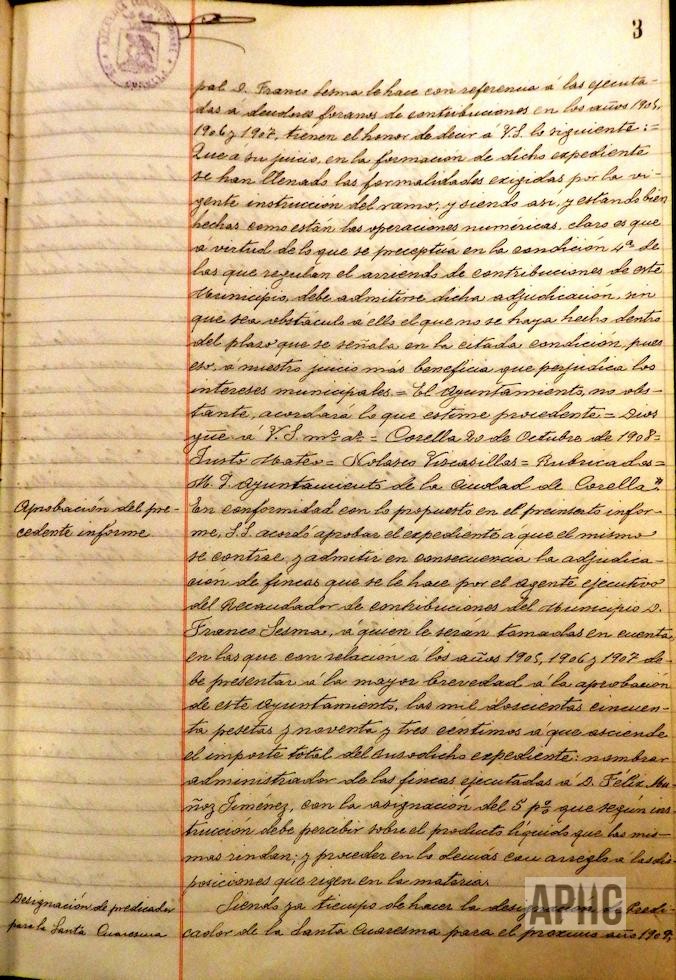 3
pal D. Franco Sesma le hace con referencia á las ejecuta-
das á deudores foranos de contribuciones en los años 1905,
1906 y 1907, tienen el honor de decir á V.S. lo siguiente:=
Que á su juicio, en la formación de dicho expediente
se han llenado las formalidades exigidas por la vi-
gente instrucción del ramo, y siendo así, y estando bien
hechas como están las operaciones numéricas, claro es que
a virtud de lo que se preceptúa en la condición 4ª de
las que regulan el arriendo de contribuciones de este
Municipio, debe admitirse dicha adjudicación, sin
que sea obstáculo á ello el que no se haya hecho dentro
del plazo que se señala en la citada condición, pues
eso, a nuestro juicio más beneficia que perjudica los
intereses municipales.= El Ayuntamiento, no obs-
tante, acordará lo que estime procedente.= Dios
gũe á V.S. mˢ aˢ = Corella 20 de Octubre de 1908=
Justo Mateo= Nolasco Viscasillas= Rubricados=
M. I. Ayuntamiento de la Ciudad de Corella".
Aprobación del pre-
cedente informe
En conformidad con lo propuesto en el preinserto infor-
me, S.S. acordó aprobar el expediente á que el mismo
se contrae, y admitir en consecuencia la adjudica-
ción de fincas que se le hace por el Agente ejecutivo
del Recaudador de contribuciones del Municipio D.
Franco Sesma, á quien le serán tomadas en cuenta,
en las que con relación á los años 1905, 1906 y 1907 de-
be presentar á la mayor brevedad á la aprobación
de este Ayuntamiento, las mil doscientas cincuen-
ta pesetas y noventa y tres céntimos á que asciende
el importe total del susodicho expediente: nombrar
administrador de las fincas ejecutadas á D. Félix Mu-
ñoz Jiménez, con la asignación del 5 p% que según ins-
trucción debe percibir sobre el producto líquido que las mis-
mas rindan; y proceder en lo demás con arreglo á las dis-
posiciones que rigen en la materia.
Designación de predicador
para la Santa Cuaresma
Siendo ya tiempo de hacer la designación de Predi-
cador de la Santa Cuaresma para el próximo año 1909,
APHC